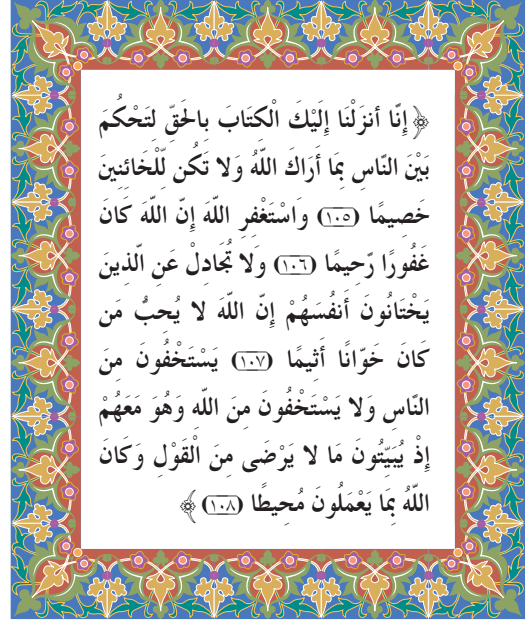 ﴿ إِنَّا أنزَلْنَا إِلَيْكَ الْكتَابَ بالحَقّ لتَحْكُمَ
بَيْنَ النّاس بمَا أَرَاكَ اللّهُ وَلا تَكُن لّلْخَائنينَ
خَصيمًا (١٠٥) وَاسْتَغْفر اللّهَ إنّ اللّهَ كَانَ
غَفُورًا رّحيمًا (١٠٦) وَلا تُجَادلْ عَن الّذينَ
يَخْتَانُون أنفُسَهُمْ إنّ اللّهَ لا يُحبُّ مَن
كَانَ خَوّانًا أثيمًا (١٠٧) يَسْتَخْفُونَ منَ
النّاس وَلا يَسْتَخْفُونَ منَ اللّه وَهُوَ مَعَهُمْ
إذْ يُبَيّتُونَ مَا لا يَرْضَى منَ الْقَوْل وَكَانَ
اللّهُ بمَا يَعْمَلُونَ مُحيطًا (١٠٨) ﴾